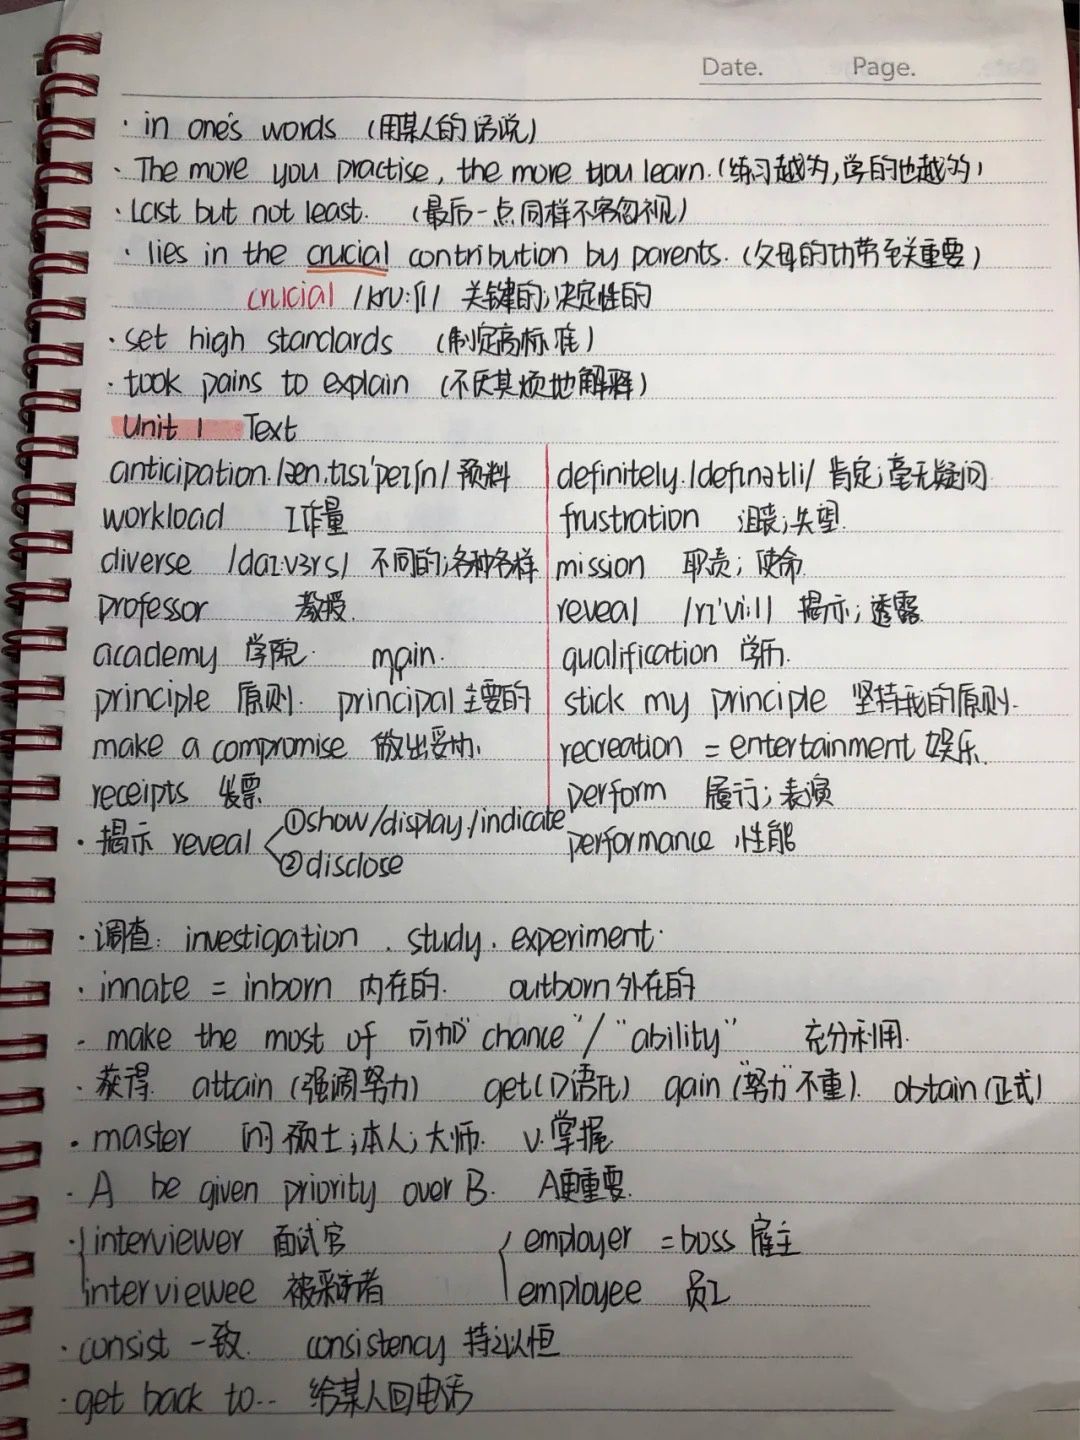 Date. Page.
· in one's words (用某人的话说)
· The more you practise, the more you learn. (练习越多,学的也越多)
· Last but not least. (最后一点同样不容忽视)
· lies in the crucial contribution by parents. (父母的功劳至关重要)
crucial /kru:ʃl/ 关键的;决定性的
· set high standards (制定高标准)
· took pains to explain (不厌其烦地解释)
Unit 1 Text
anticipation./æn.tɪsɪ'peɪʃn/ 预料
workload 工作量
diverse /daɪ.vɜrs/ 不同的;各种各样
professor 教授.
academy 学院. main.
principle 原则. principal 主要的
make a compromise 做出妥协.
receipts 发票
definitely./defɪnətli/ 肯定;毫无疑问.
frustration 沮丧;失望.
mission 职责;使命.
reveal /rɪ'vi:l/ 揭示;透露.
qualification 学历.
stick my principle 坚持我的原则.
recreation = entertainment 娱乐.
perform 履行;表演
performance 性能
· 揭示 reveal ①show/display/indicate
②disclose
· 调查: investigation . study . experiment.
· innate = inborn 内在的. outborn 外在的
· make the most of 可加"chance"/"ability" 充分利用.
· 获得. attain (强调努力) get(口语化) gain ("努力"不重). obtain (正式)
· master [n] 硕士;本人;大师. v.掌握.
· A be given priority over B. A更重要.
· interviewer 面试官 employer = boss 雇主
interviewee 被采访者 employee 员工
· consist 一致. consistency 持之以恒
· get back to... 给某人回电话